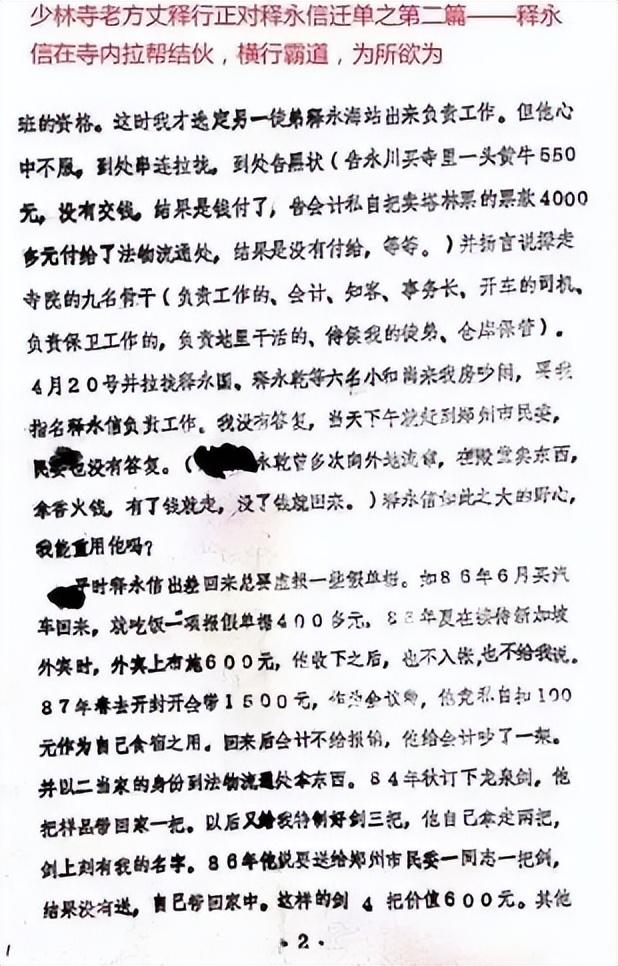 少林寺老方丈释行正对释永信迁单之第二篇——释永
信在寺内拉帮结伙，横行霸道，为所欲为
班的资格。这时我才选定另一徒弟释永海站出来负责工作。但他心
中不服，到处串连拉拢，到处告黑状（告永川买寺里一头黄牛550
元，没有交钱，结果是钱付了，告会计私自把卖塔林票的票款4000
多元付给了法物流通处，结果是没有付给，等等。）并扬言说撵走
寺院的九名骨干（负责工作的、会计、知客、事务长、开车的司机、
负责保卫工作的，负责地里干活的、侍侯我的徒弟、仓库保管）。
4月20号并拉拢释永国、释永乾等六名小和尚来我房吵闹，要我
指名释永信负责工作。我没有答复，当天下午就赶到郑州市民委，
民委也没有答复。（永乾曾多次向外地流窜，在殿堂卖东西，
拿香火钱，有了钱就走，没了钱就回来。）释永信如此之大的野心，
我能重用他吗？
平时释永信出差回来总要虚报一些假单据。如86年6月买汽
车回来，就吃饭一项报假单据400多元，8年夏在接待新加坡
外宾时，外宾上布施600元，他收下之后，也不入帐，也不给我说。
87年春去开封开会带1500元，作为会议费，他竟私自扣100
元作为自己食宿之用。回来后会计不给报销，他给会计吵了一架。
并以二当家的身份到法物流通处拿东西。84年秋订下龙泉剑，他
把样品带回家一把。以后又给我特制好剑三把，他自己拿走两把，
剑上刻有我的名字。86年他说要送给郑州市民委一同志一把剑，
结果没有送，自己带回家中。这样的剑4把价值600元。其他
·2·